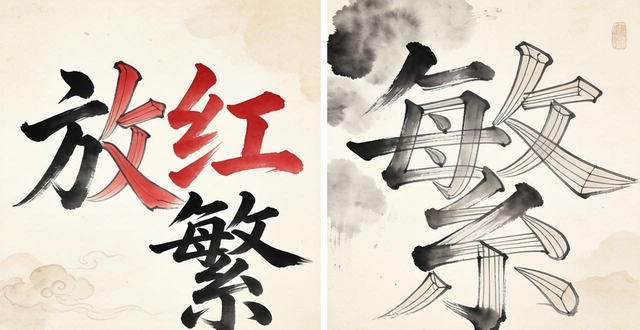 放红
繁
繁